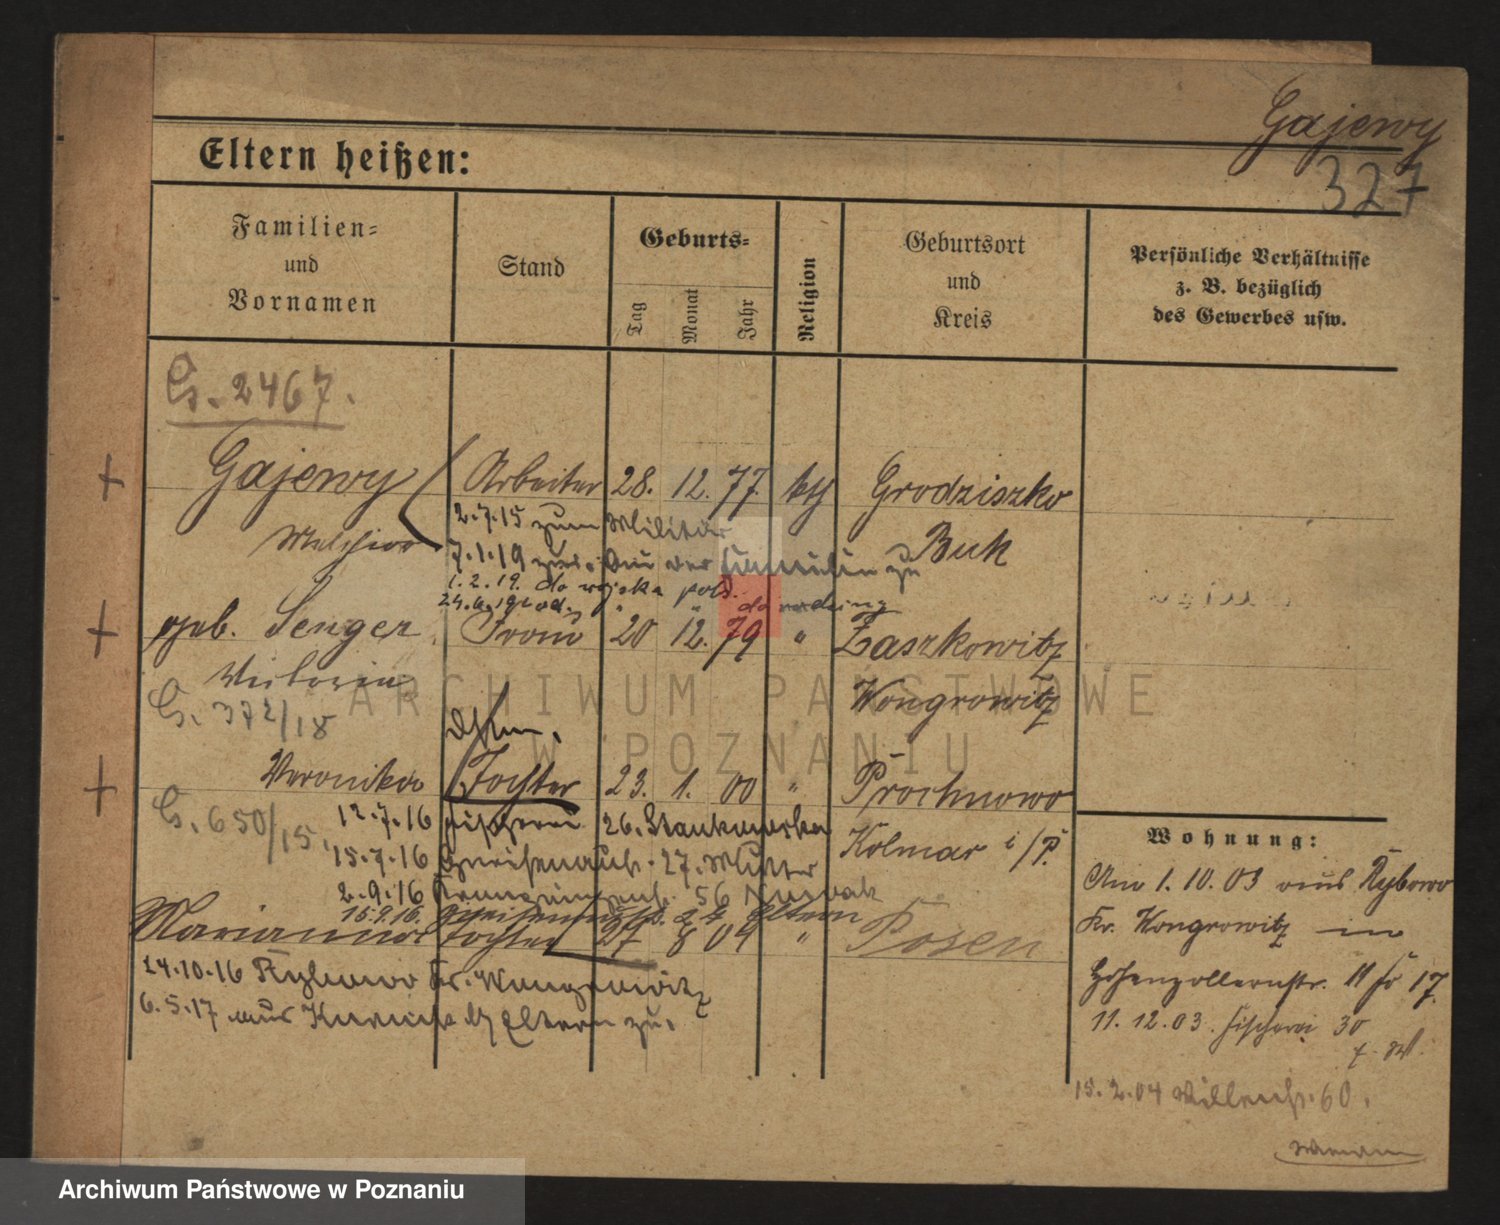 Gajewy
327
Eltern heißen:
Familien=
und
Vornamen
Stand
Geburts=
Tag
Monat
Jahr
Religion
Geburtsort
und
Kreis
Persönliche Verhältnisse
z. B. bezüglich
des Gewerbes usw.
G. 2467.
Gajewy Arbeiter 28. 12. 77. kth Grodziszko
Melchior
2.7.15 zum Militär
Buk
7.1.19 zur. von der zu
1.2.19. do wojska pols.
24.6.19 od " " do rodziny
geb. Senger Frau 20 12. 79 " Zaszkowitz
Victoria
Wongrowitz
G. 372/18
Veronika Tochter 23. 1. 00 " Prochnowo
G. 650/15.
12.7.16 26.
Kolmar i/P.
15.7.16 Gneisenaustr. 27. Mutter
2.9.16 56 Nowak
15.9.16. Gneisenaustr. 27 Eltern
Marianna Tochter 27 8 04 " Posen
24.10.16 Rybowo Kr. Wongrowitz
6.5.17 aus Eltern zu.
Wohnung:
Am 1.10.03 aus Rybowo
Kr. Wongrowitz in
Hohenzollernstr. 11 17.
11.12.03. Fischerei 30
15.2.04 60.
ARCHIWUM PAŃSTWOWE
W POZNANIU
Archiwum Państwowe w Poznaniu